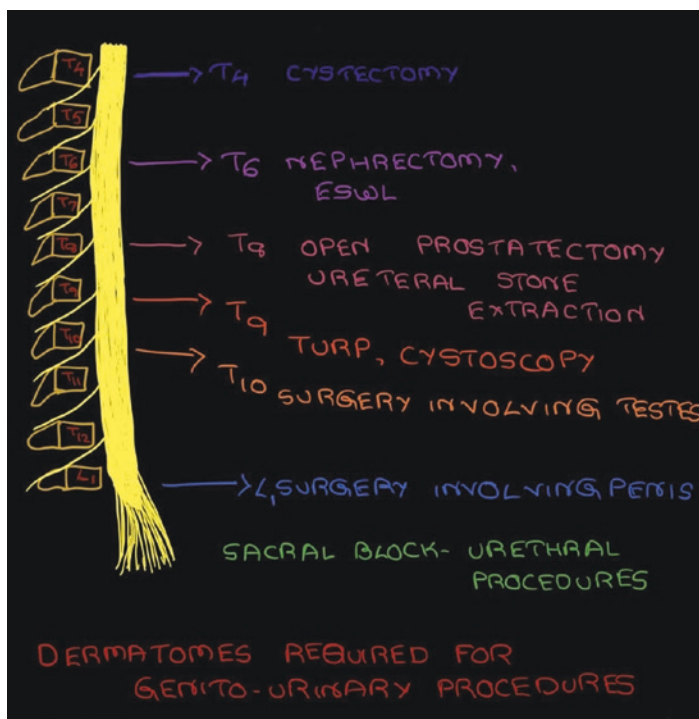 T4
T5
T6
T7
T8
T9
T10
T11
T12
L1
T4 CYSTECTOMY
T6 NEPHRECTOMY,
ESWL
T8 OPEN PROSTATECTOMY
URETERAL STONE
EXTRACTION
T9
TURP, CYSTOSCOPY
T10 SURGERY INVOLVING TESTES
L1 SURGERY INVOLVING PENIS
SACRAL BLOCK- URETHRAL
PROCEDURES
DERMATOMES REQUIRED FOR
GENITO-URINARY PROCEDURES